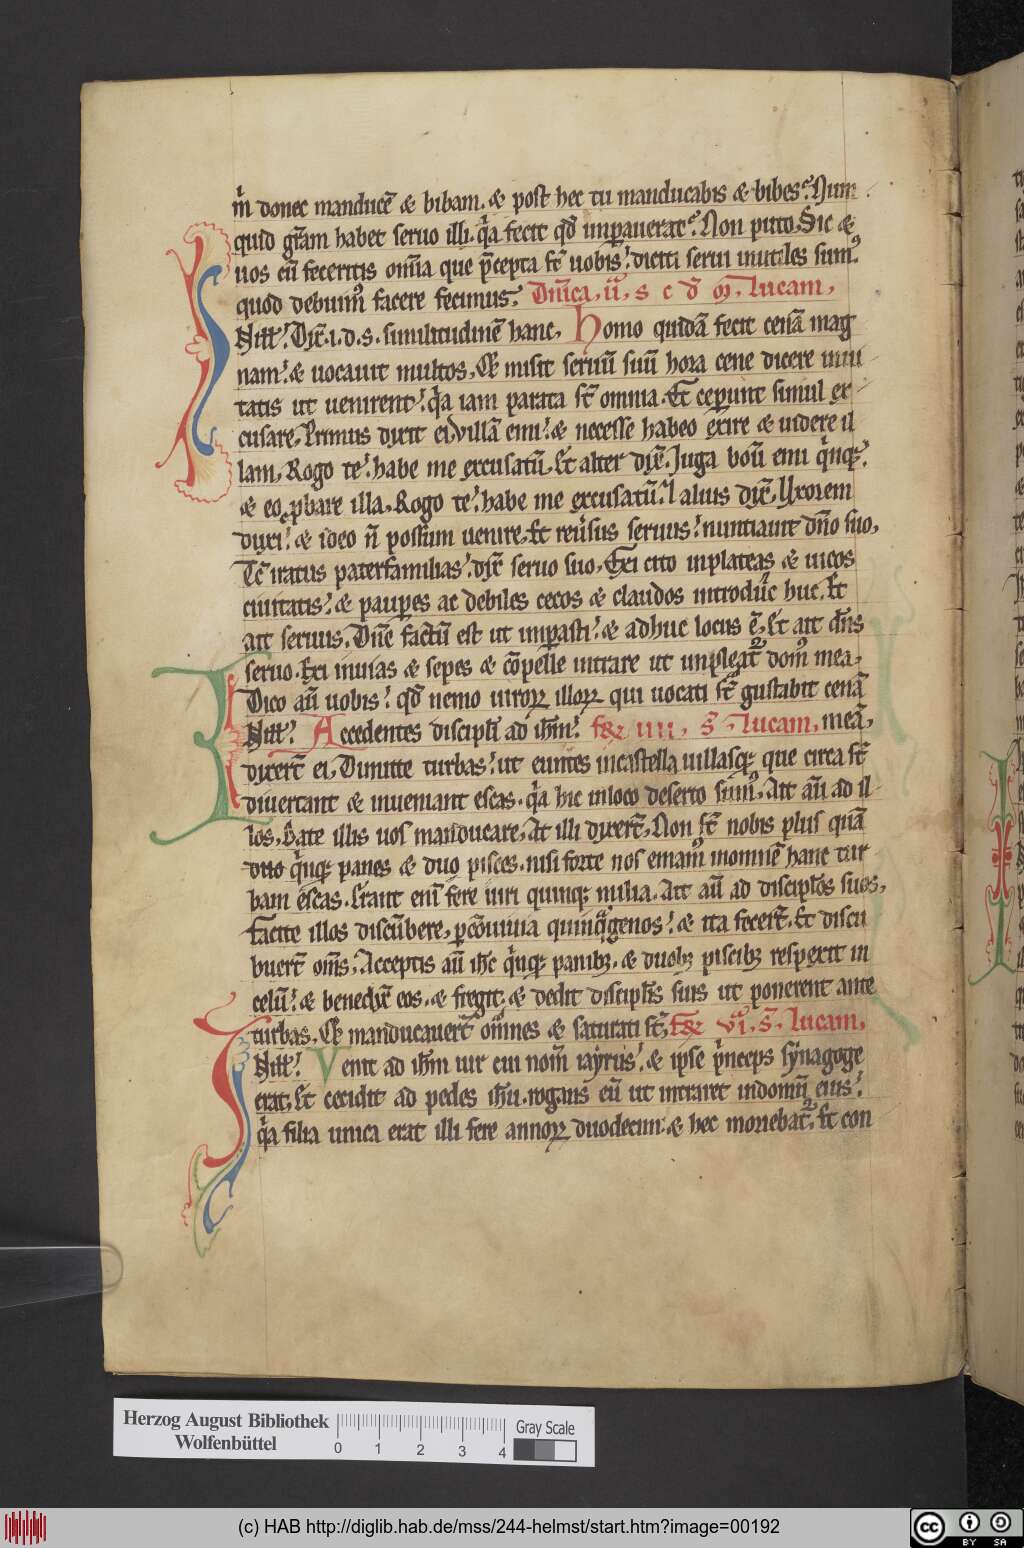 m̄ donec manducē & bibam. & post hec tu manducabis & bibes? Num
quid gr̄am habet seruo illi. q̇a fecit qd̄ imꝑauerat? Non puto. Sic &
uos cū feceritis om̄ia que p̄cepta st̄ uobis! dicite serui inutiles sumꝰ
quod debuimꝰ facere fecimus. Dn̄ica. ii. s c d̄ m. Lucam.
In ill! Dix̄. i. d. s. similitudinē hanc. Homo quidā fecit cenā mag
nam! & uocauit multos. Et misit seruū suū hora cene dicere inui
tatis ut uenirent! q̇a iam parata st̄ omnia. Et ceperunt simul ex
cusare. Primus dixit ei. Villā emi! & necesse habeo exire & uidere il
lam. Rogo te! habe me excusatū. Et alter dix̄. Juga boū emi q̇nqꝫ!
& eo ꝓbare illa. Rogo te! habe me excusatū. Et alius dix̄. Uxorem
duxi! & ideo n̄ possum uenire. Et reu̇sus seruus! nuntiauit dn̄o suo.
Tc̄ iratus paterfamilias! dix̄ seruo suo. Exi cito inplateas & uicos
ciuitatis! & pauꝑes ac debiles cecos & claudos introduc huc. Et
ait seruus. Dn̄e factū est ut imꝑasti! & adhuc locus ē. Et ait dn̄s
seruo. Exi inuias & sepes & cōpelle intrare ut impleat domꝰ mea.
Dico aū uobis! qd̄ nemo uiroꝝ illoꝝ qui uocati st̄ gustabit cenā
In ill! Accedentes discipl̄i ad ih̄m! fr̄e iiii. s̄. Lucam, meā.
dixert̄ ei. Dimitte turbas! ut euntes incastella uillasqꝫ que circa st̄
diuertant & inueniant escas. q̇a hic inloco deserto sumꝰ. Ait aū ad il
los. Date illis uos manducare. At illi dixert̄. Non st̄ nobis plus quā
duo q̇nqꝫ panes & duo pisces. nisi forte nos emamꝰ inomnē hanc tur
bam escas. Erant eni fere uiri quinqꝫ milia. Ait aū ad discipl̄os suos.
Facite illos discūbere. ꝑ cōuiuia quinqgenos! & ita fecert̄. Et discu
buert̄ om̄s. Acceptis aū ih̄c q̇nqꝫ panibꝫ. & duobꝫ piscibꝫ respexit in
celū! & benedix̄ eos. & fregit. & dedit discipl̄is suis ut ponerent ante
turbas. Et manducauert̄ om̄nes & saturati st̄. Fr̄e vi. s̄. Lucam.
In ill! Venit ad ih̄m uir cui nom̄ iayrus! & ipse p̄nceps synagoge
erat. Et cecidit ad pedes ih̄u. rogans eū ut intraret indomū eius!
q̇a filia unica erat illi fere annoꝝ duodecim. & hec moriebat. Et con
Herzog August Bibliothek
Wolfenbüttel
0 1 2 3 4
Gray Scale
(c) HAB http://diglib.hab.de/mss/244-helmst/start.htm?image=00192
cc BY SA